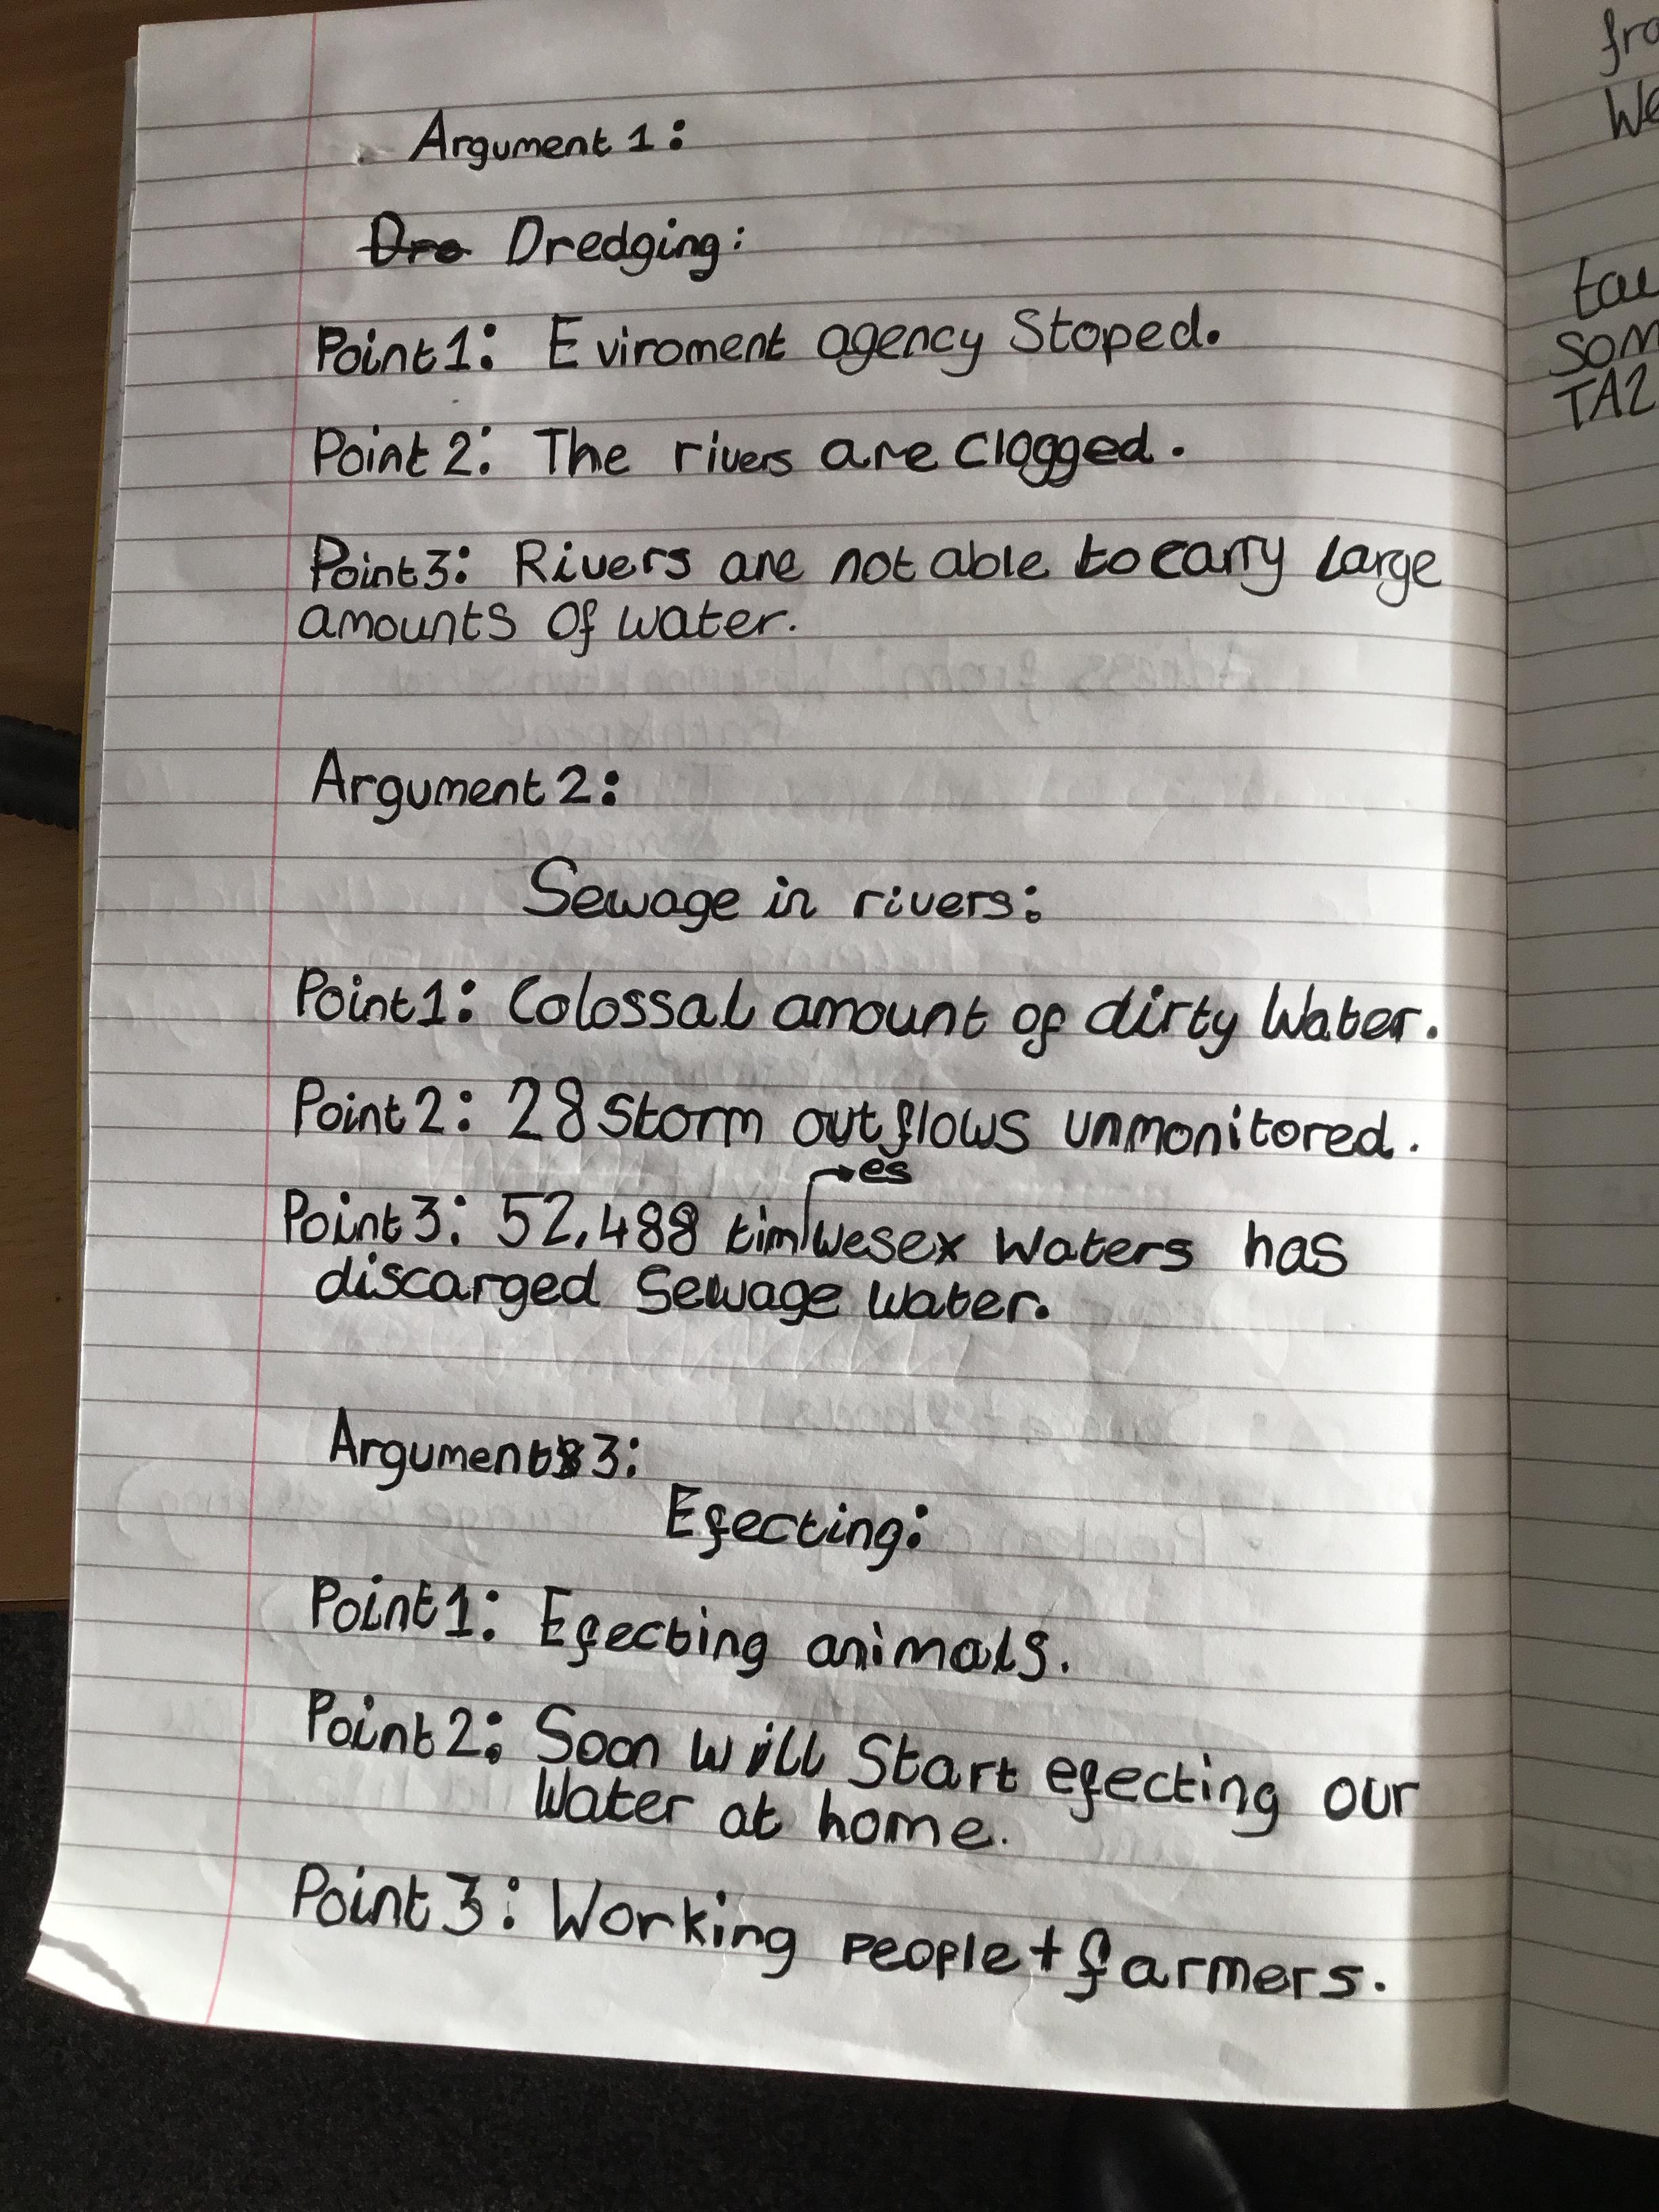 Argument 1:
Dro Dredging:
Point 1: Eviroment agency Stoped.
Point 2: The rivers are clogged.
Point 3: Rivers are not able to carry large
amounts of water.
Argument 2:
Sewage in rivers:
Point 1: Colossal amount of dirty Water.
Point 2: 28 storm outflows unmonitored.
es
Point 3: 52,488 tim Wesex Waters has
discarged Sewage water.
Argument 3:
Efecting:
Point 1: Efecting animals.
Point 2: Soon will Start efecting our
Water at home.
Point 3: Working people + farmers.
fro
We
tau
som
TA2